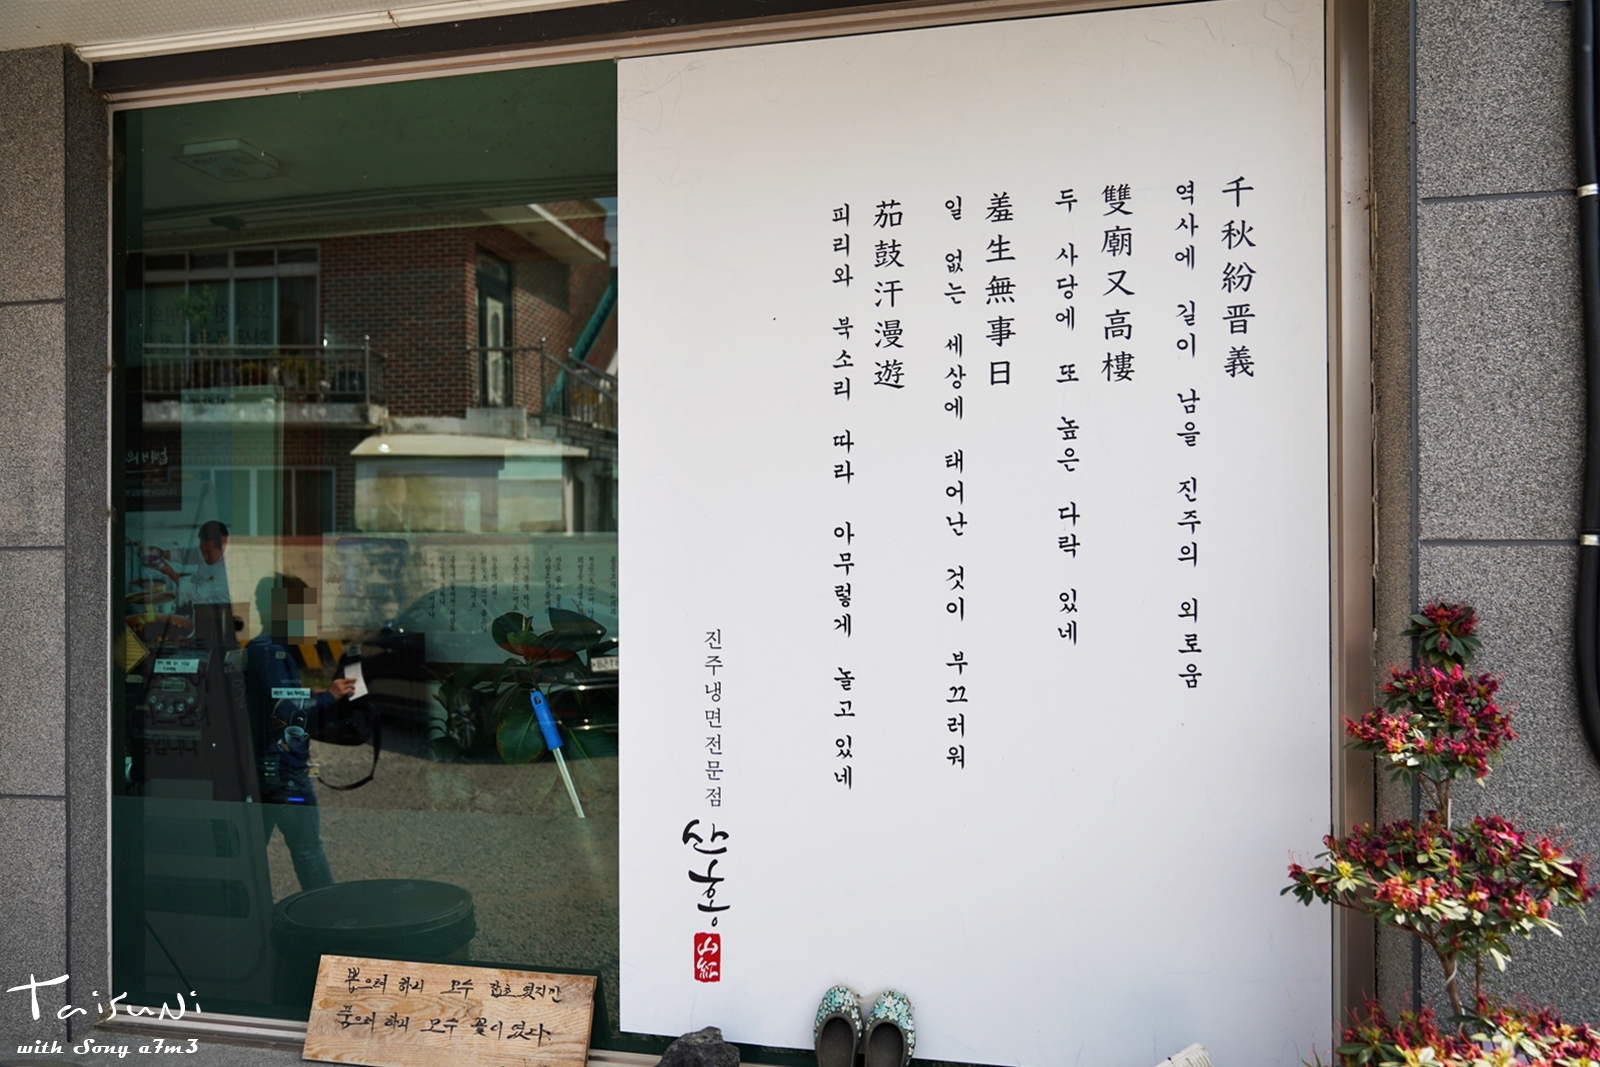 千秋紛晋義
역사에 길이 남을 진주의 외로움
雙廟又高樓
두 사당에 또 높은 다락 있네
羞生無事日
일 없는 세상에 태어난 것이 부끄러워
茄鼓汗漫遊
피리와 북소리 따라 아무렇게 놀고있네
진주냉면전문점
산홍
山紅
뽑으려 하니 모두 잡초였지만
품으려 하니 모두 꽃이였다.
Taisuni
with Sony a7m3